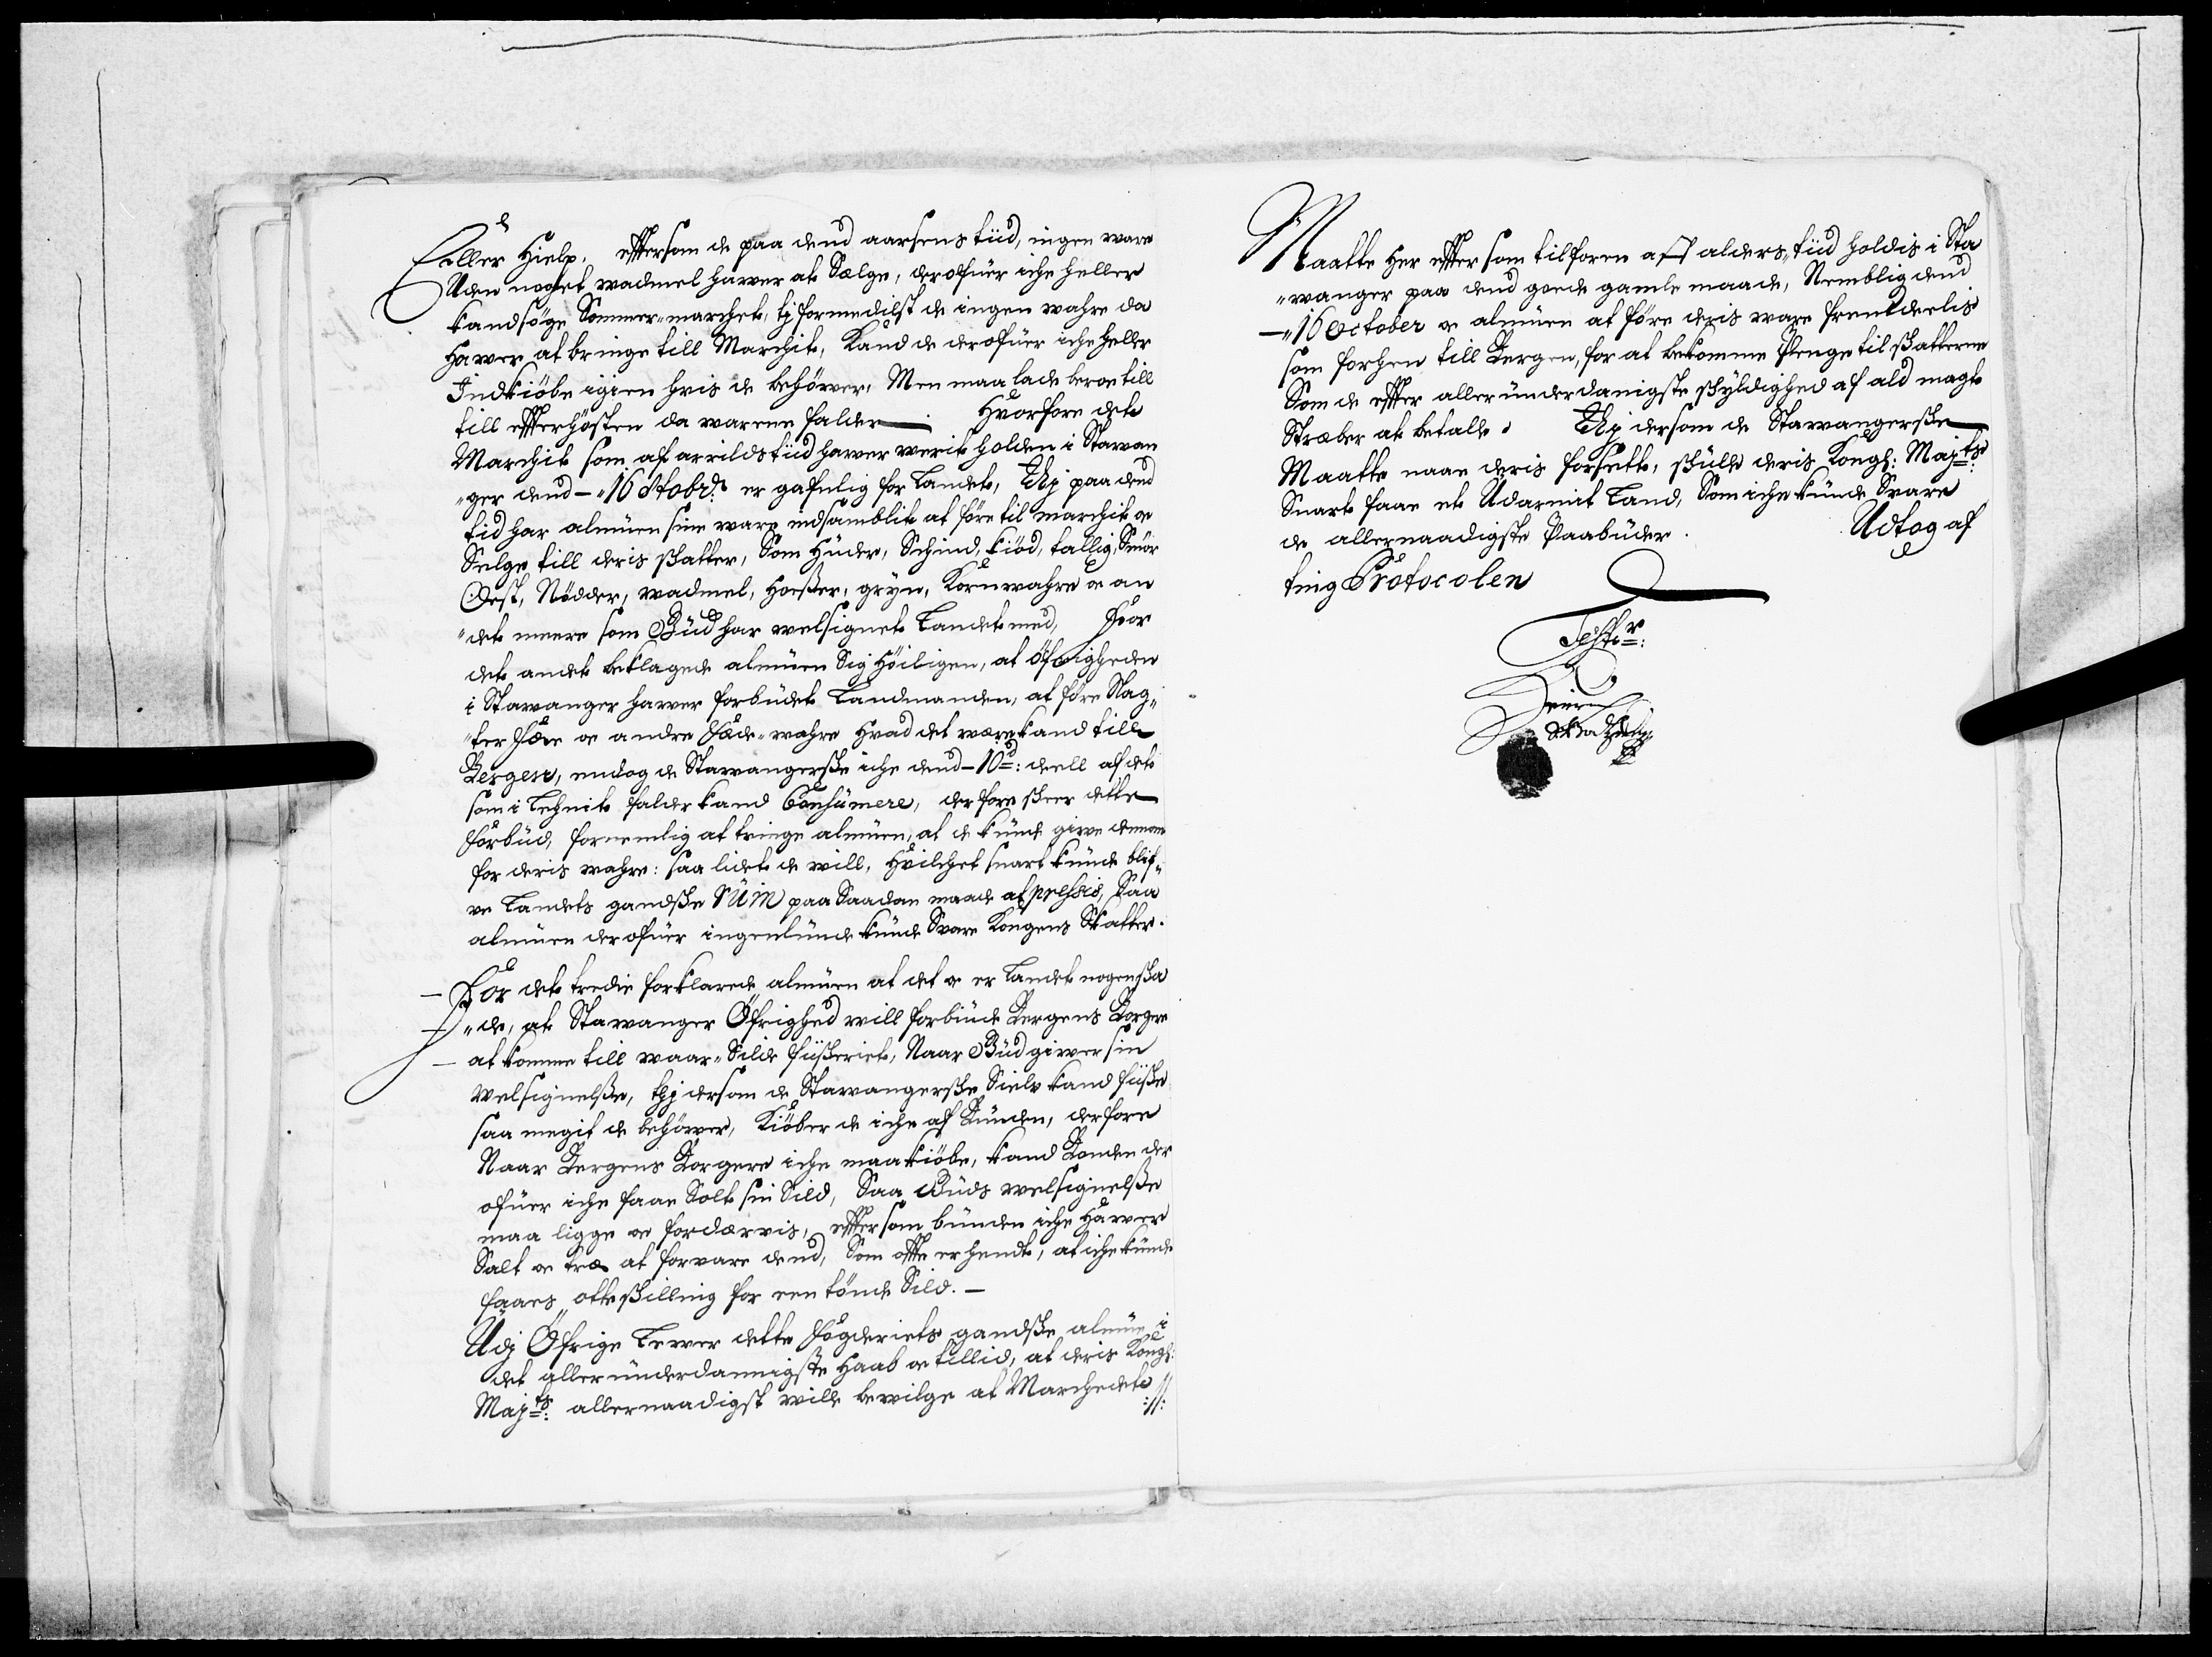 Eller Hielp. effttersom de paa dend aarsens tiid, ingen ware
Uden noghet wadmel hawer at Sælge, derofuer iche heller
kand søge Sommer-marchet, tj formedilst de ingen wahre da
Hawer at bringe till Marchit, Kand de derofuer iche heller
Indkiøbe igien hvis de behøwer, Men maa lade beroe till
till effterhøsten da warene falder Hvorfore det
Marchit som af arrildstiid hawer werit holden i Stawan
"ger dend - 16 octobr: er gafnlig for Landet, Thj paa dend
tid har almuen sine ware indsamblit at føre til marchit oc
Selge till deris skatter, Som Huder, Schind, kiød, tallig, Smør
Oest, Nødder, wadmel, Hoeßer, gryn, Kornwahre oc an
"det meere som Gud har welsignet Landet med, For
det andet beklagede almuen Sig Høiligen, at øfrigheden
i Stawanger hawer forbudet Landmanden, at føre Slag
"ter fæe oc andre Fæde-wahre Hvad det være kand till
Bergen, endog de Stawangerske iche dend - 10de: deell af det
som i Lehnit falder kand Consumere, derfore skeer dette
forbud, fornemlig at tvinge almuen, at de kunde giwe dennem
for deris wahre: saa lidet de will, Hvilchet snart kunde blif
ve Landets gandske ruin paa Saadan maade at pressis, Saa
almuen derofuer ingenlunde kunde Svare Kongens Skatter.
For det tredie forklarede almuen at det oc er Landet nogen ska
"de, at Stawanger Øfrighed will forbiude Bergens Borgere
at komme till waar-Silde fiskeriet, Naar Gud giwer sin
welsignelße, thj dersom de Stawangerske Sielv kand fiske
saa megit de behøwer, Kiøber de iche af Bunden, derfore
Naar Bergens Borgere iche maa kiøbe, kand Bonden der
ofuer iche faae Solt sin Sild, Saa Guds welsignelße
maa ligge oc fordærvis, efftersom bunden iche Hawer
Salt oc træ at forvare dend, Som offte er hendt, at iche kunde
faaes otte skilling for een tønde Sild. -
Udj Øfrige Lewer dette Fogderiets gandske almue i
det allerunderdannigste Haab oc tillid, at deris Kongl:
Majts: allernaadigst wille bewilge at Marchedet
://:
Maatte Her effter som tilforen aff alders tiid holdis i Sta
"wanger paa dend goede gamle maade, Nemblig dend
- 16 October oc almuen at føre deris ware fremdeelis
som forhen till Bergen, for at bekomme Penge til skatterne
Som de effter allerunderdanigste skyldighed af ald magt
Stræber at betale. Thj dersom de Stawangerske
Maatte naae deris forsætt, skulle deris Kongl: Majts:
Snart faae et Udarmit Land, Som iche kunde Svare
de allernaadigste Paabuder. Udtog af
ting Protocolen
Tester: